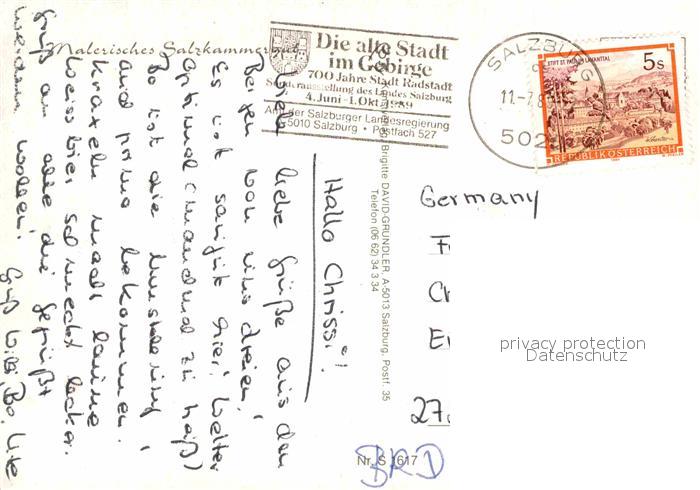 Malerisches Salzkammergut
Die alte Stadt
im Gebirge
700 Jahre Stadt Radstadt
Sonderausstellung des Landes Salzburg
4. Juni - 1. Okt. 1989
Amt der Salzburger Landesregierung
5010 Salzburg • Postfach 527
SALZBURG
11.-7.8
502
STIFT ST. PAUL IM LAVANTTAL
5s
REPUBLIK ÖSTERREICH
Brigitte DAVID-GRUNDLER, A-5013 Salzburg, Postf. 35
Telefon (06 62) 34 3 34
Hallo Chrissi!
Viele liebe Grüße aus den
Bergen von uns dreien,
Es ist hier, Wetter
optimal (manchmal zu heiß)
Bo ist die
und prima bekommen.
Kraxeln macht Laune
Weissbier schmeckt lecker.
Gruß an alle die gegrüßt
werden wollen!
Gruß Willi, Bo, Ute
Germany
F
Ch
E
27.
BRD
Nr. S 1617
privacy protection
Datenschutz